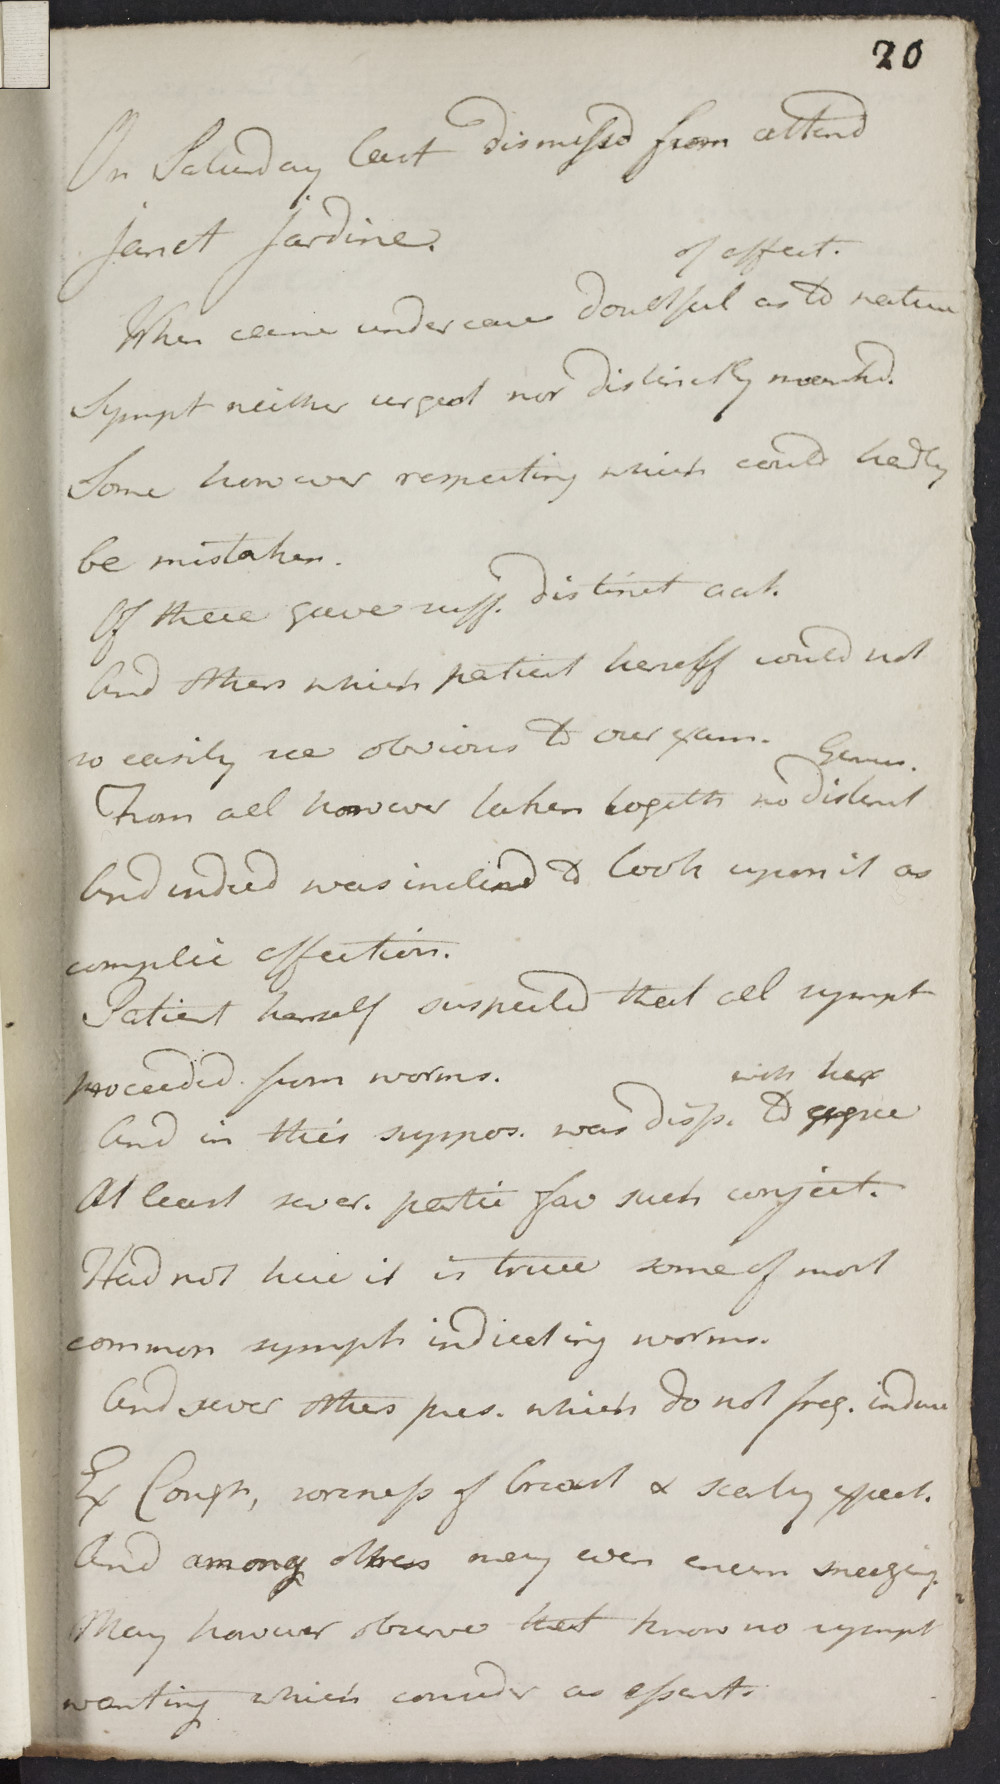 20
On Saturday last dismissed from attend
Janet Jardine.
of affect.
When came under care doubtful as to nature
Sympt neither urgent nor distinctly marked.
Some however respecting which could hadly
be mistaken.
Of these gave suff. distinct acct.
And others which patient herself could not
so easily see obvious to our exam.
Genus.
From all however taken togeth no distinct
And indeed was inclined to look upon it as
complic affection.
Patient herself suspected that all sympt
proceeded from worms.
with her
And in this suppos. was disp. to agree
At least sever. partic fav such conject.
Had not here it is true some of most
common sympts indicating worms.
And sever others pres. which do not freq. induce
Ex Cough, soreness of breast & expect.
And among others may even sneezing.
May however observe that know no sympt
wanting which consider as essent.